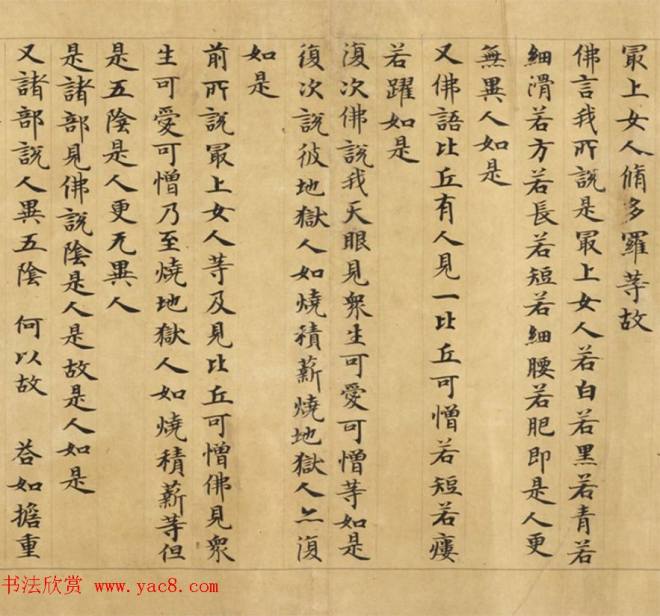 冣上女人脩多羅䓁故
佛言我所說是冣上女人若白若黑若青若
細滑若方若長若短若細腰若肥即是人更
無異人如是
又佛語比丘有人見一比丘可憎若短若瘻
若躍如是
復次佛說我天眼見衆生可愛可憎䓁如是
復次說彼地獄人如燒積薪燒地獄人亦復
如是
前所說冣上女人䓁及見比丘可憎佛見衆
生可愛可憎乃至燒地獄人如燒積薪䓁但
是五陰是人更无異人
是諸部見佛說陰是人是故是人如是
又諸部說人異五陰 何以故 荅如擔重
书法欣赏 www.yac8.com